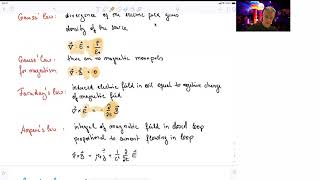 Gauss' law: divergence of the electric field gives
density of the source
∇⃗ · E⃗ = ρ/ε₀
Gauss' law for magnetism: there are no magnetic monopoles
∇⃗ · B⃗ = 0
Faraday's law: induced electric field in coil equal to negative change
of magnetic field
∇⃗ × E⃗ = - ∂/∂t B⃗
Ampere's law: integral of magnetic field in closed loop
proportional to current flowing in loop
∇⃗ × B⃗ = μ₀ j⃗ + 1/c² ∂/∂t E⃗